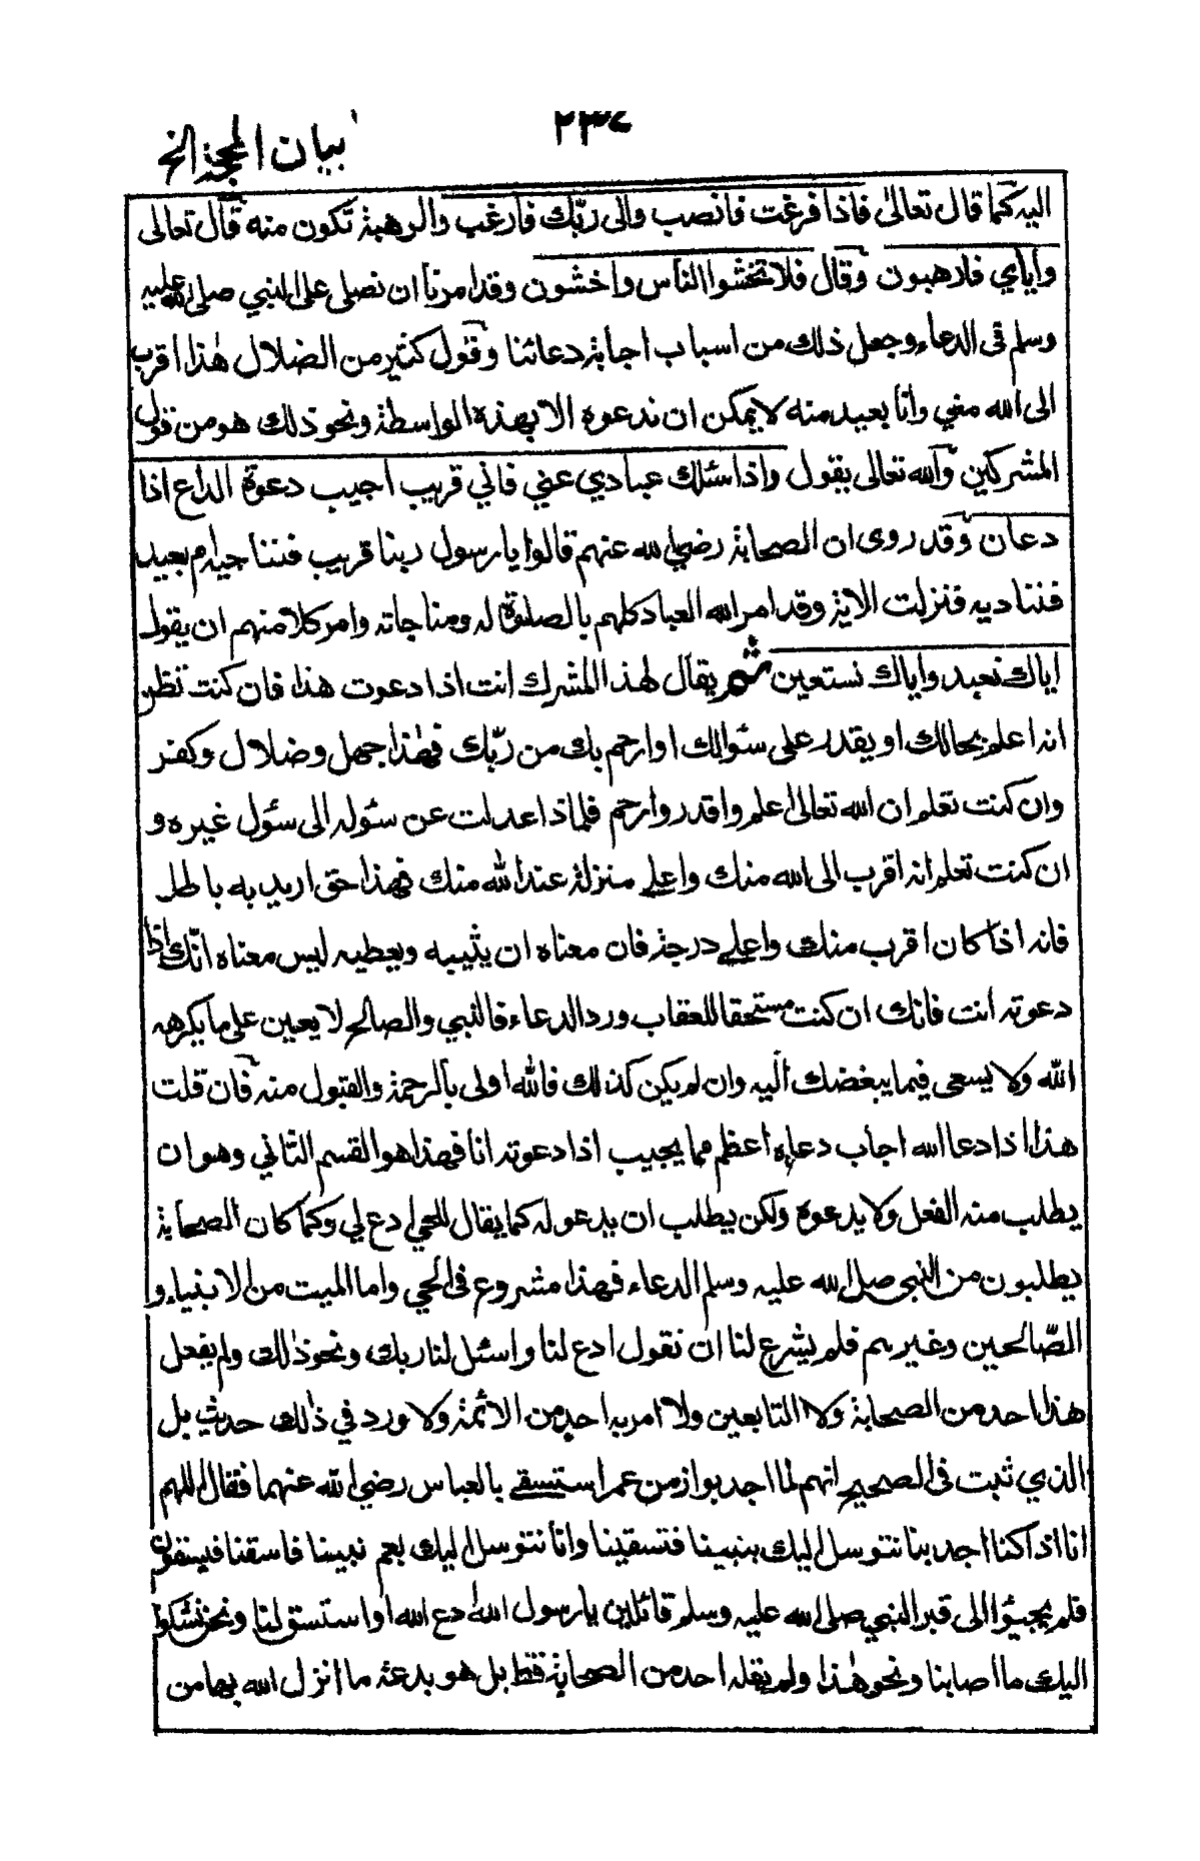 بيان المحجة الخ
اليه كما قال تعالى فاذا فرغت فانصب والى ربّك فارغب والرهبة تكون منه قال تعالى
واياي فارهبون وقال فلا تخشوا الناس واخشون وقد امرنا ان نصلى على النبي صلى الله عليه
وسلم فى الدعاء وجعل ذلك من اسباب اجابة دعائنا وقول كثير من الضلال هٰذا اقرب
الى الله مني وانا بعيد منه لا يمكن ان ندعوه الا بهذه الواسطة ونحو ذلك هو من قول
المشركين والله تعالى يقول واذا سئلك عبادي عني فاني قريب اجيب دعوة الداع اذا
دعان وقد روى ان الصحابة رضي الله عنهم قالوا يا رسول ربنا قريب فنناجيه ام بعيد
فنناديه فنزلت الاية وقد امر الله العباد كلهم بالصلوة له ومناجاته وامر كلا منهم ان يقول
اياك نعبد واياك نستعين ثم يقال لهذا المشرك انت اذا دعوت هذا فان كنت تظن
انه اعلم بحالك او يقدر على سئوالك او ارحم بك من ربّك فهٰذا جهل وضلال وكفر
وان كنت تعلم ان الله تعالىٰ اعلم واقدر وارحم فلماذا عدلت عن سئوله الى سئول غيره و
ان كنت تعلم انه اقرب الى الله منك واعلى منزلة عند الله منك فهذا حق اريد به باطل
فانه اذا كان اقرب منك واعلى درجة فان معناه ان يثيبه ويعطيه ليس معناه انّك اذا
دعوته انت فانك ان كنت مستحقا للعقاب ورد الدعاء فالنبي والصالح لا يعين على ما يكرهه
الله ولا يسعى فيما يبغضك اليه وان لم يكن كذلك فالله اولى بالرحمة والقبول منه فان قلت
هذا اذا دعا الله اجاب دعاءه اعظم مما يجيب اذا دعوته انا فهذا هو القسم الثاني وهو ان
يطلب منه الفعل ولا يدعوه ولكن يطلب ان يدعو له كما يقال للحي ادع لي وكما كان الصحابة
يطلبون من النبى صلى الله عليه وسلم الدعاء فهذا مشروع فى الحي واما الميت من الانبياء و
الصّالحين وغيرهم فلم يشرع لنا ان نقول ادع لنا واسئل لنا ربك ونحو ذٰلك ولم يفعل
هذا احد من الصحابة ولا التابعين ولا امر به احد من الائمة ولا ورد في ذٰلك حديث بل
الذي ثبت فى الصحيح انهم لما اجدبوا زمن عمر استسقے بالعباس رضي الله عنهما فقال اللهم
انا اذا كنا اجدبنا نتوسل اليك بنبينا فتسقينا وانا نتوسل اليك بعم نبينا فاسقنا فيسقون
فلم يجيئوا الى قبر النبي صلى الله عليه وسلم قائلين يا رسول الله ادع الله او استسق لنا ونحن نشكوا
اليك ما اصابنا ونحو هٰذا ولم يقله احد من الصحابة فقط بل هو بدعة ما انزل الله بها من